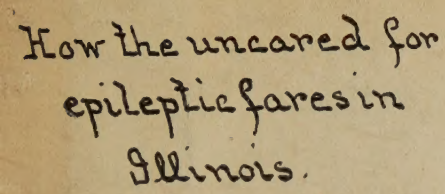 How the uncared for
epileptic fares in
Illinois.